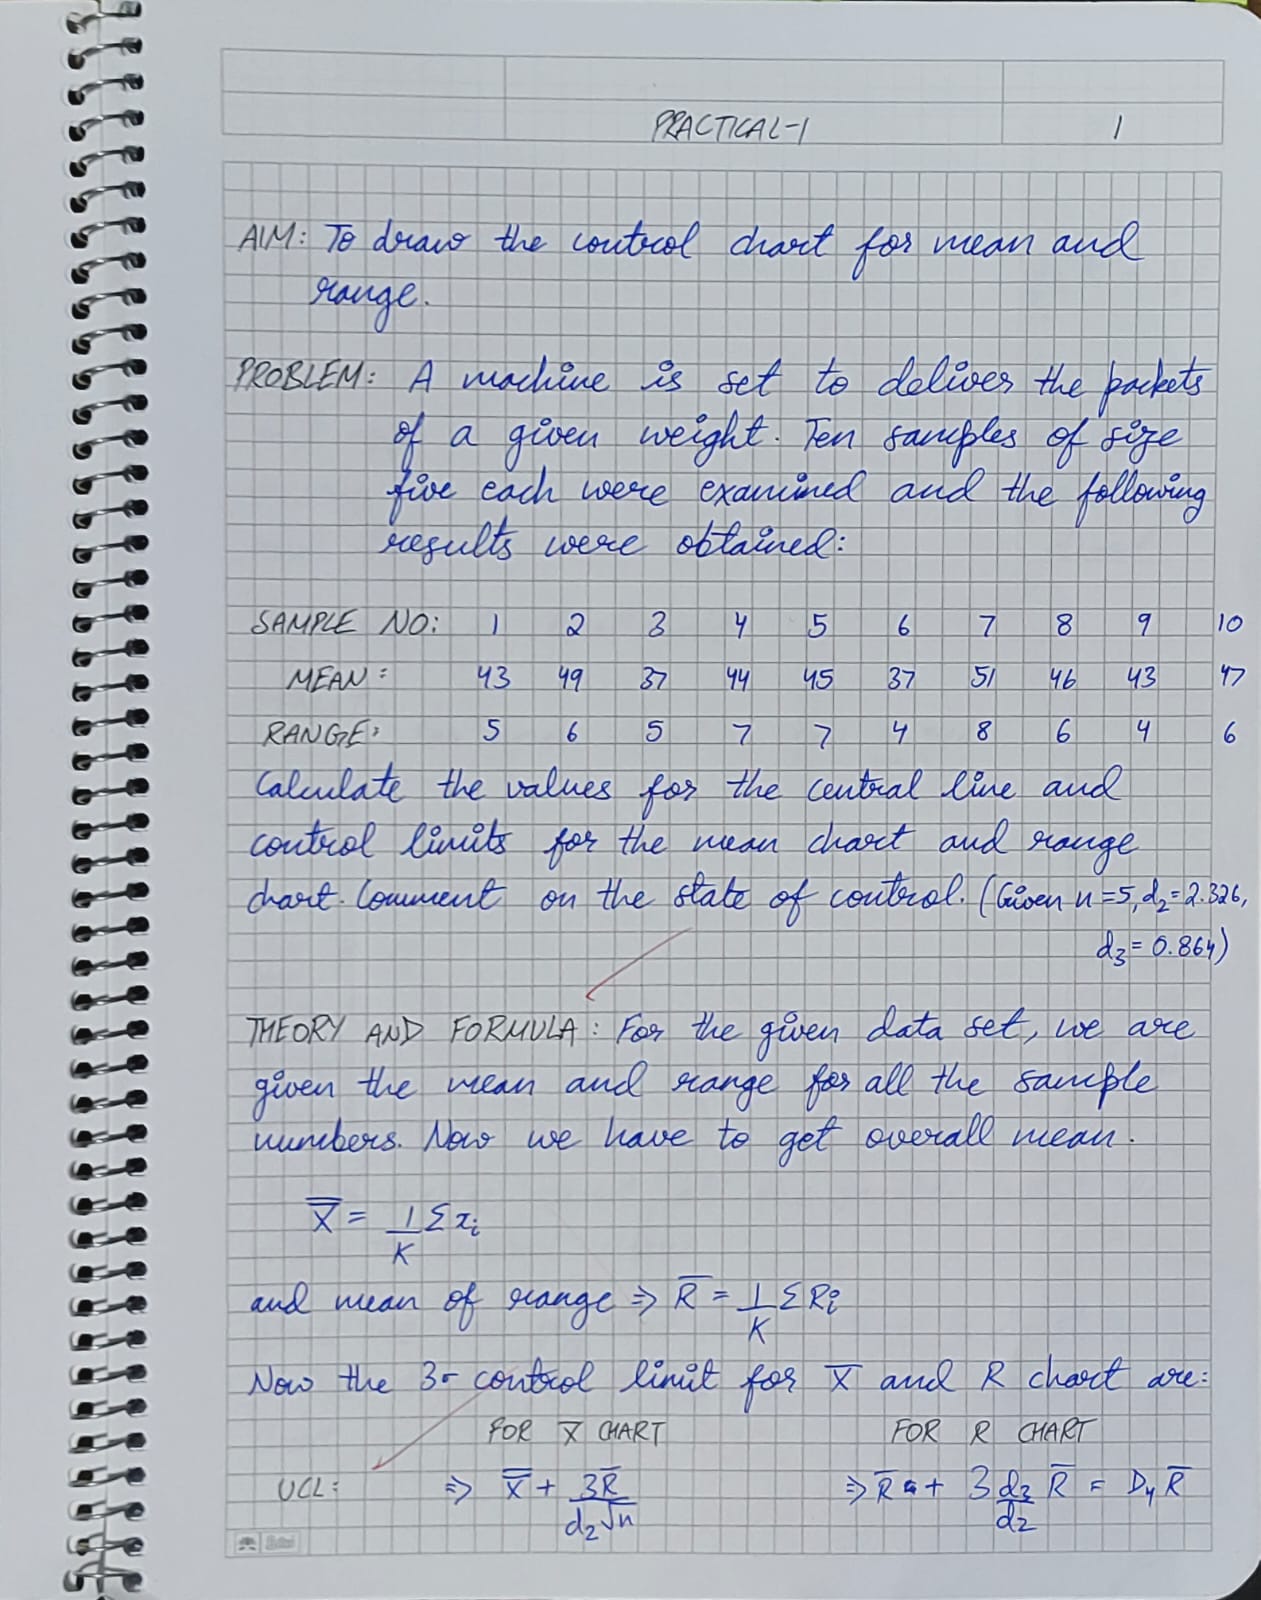 PRACTICAL-1 1
AIM: To draw the control chart for mean and
range.
PROBLEM: A machine is set to deliver the packets
of a given weight. Ten samples of size
five each were examined and the following
results were obtained:
SAMPLE NO: 1 2 3 4 5 6 7 8 9 10
MEAN: 43 49 37 44 45 37 51 46 43 47
RANGE: 5 6 5 7 7 4 8 6 4 6
Calculate the values for the central line and
control limits for the mean chart and range
chart. Comment on the state of control. (Given n=5, d₂=2.326,
d₃=0.864)
THEORY AND FORMULA: For the given data set, we are
given the mean and range for all the sample
numbers. Now we have to get overall mean.
X̿ = 1/K Σxᵢ
and mean of range ⇒ R̅ = 1/K ΣRᵢ
Now the 3σ control limit for X̅ and R chart are:
FOR X̅ CHART FOR R CHART
UCL: ⇒ X̿ + 3R̅/d₂√n ⇒ R̅ + 3 d₃/d₂ R̅ = D₄R̅